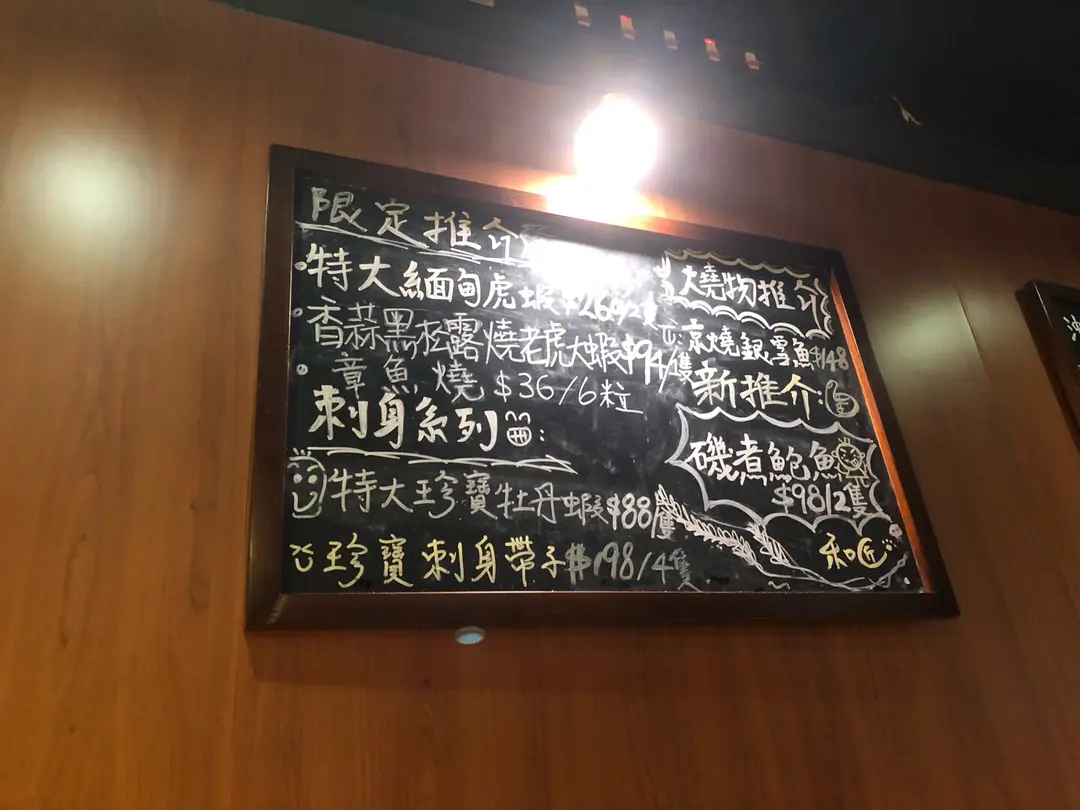 限定推介
特大緬甸虎蝦
香蒜黑松露燒老虎大蝦$94/隻
章魚燒 $36/6粒
刺身系列:
特大珍寶牡丹蝦$88/隻
珍寶刺身帶子$198/4隻
燒物推介
京燒銀雪魚$148
新推介:
磯煮鮑魚
$98/2隻
和匠